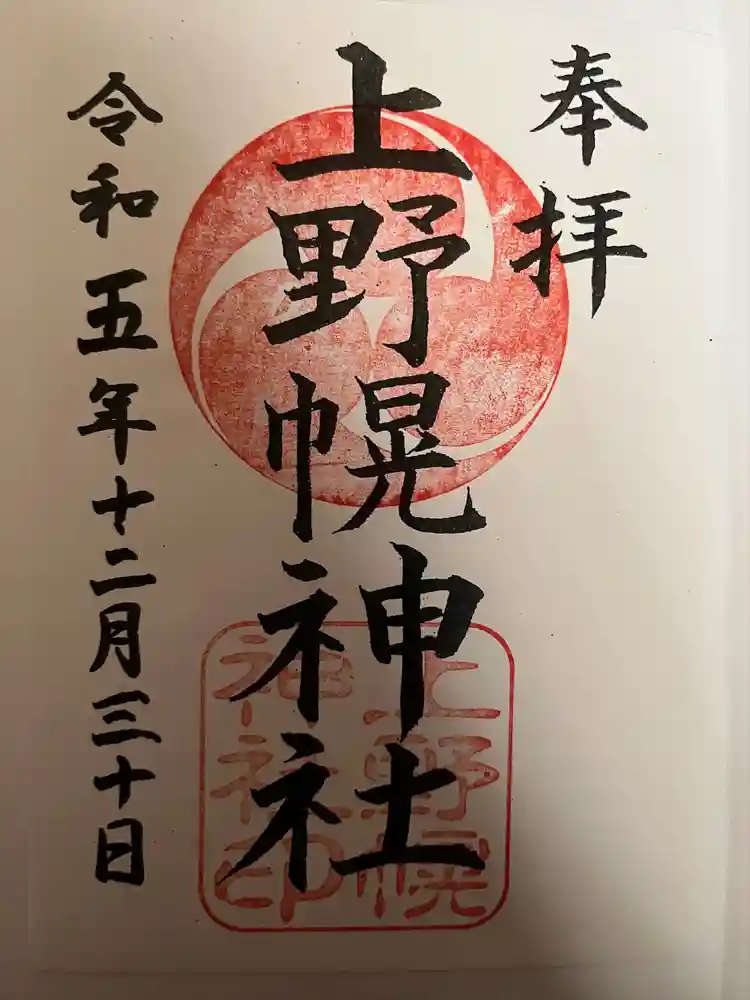 奉拝
上野幌神社
令和五年十二月三十日
上野幌
神社印